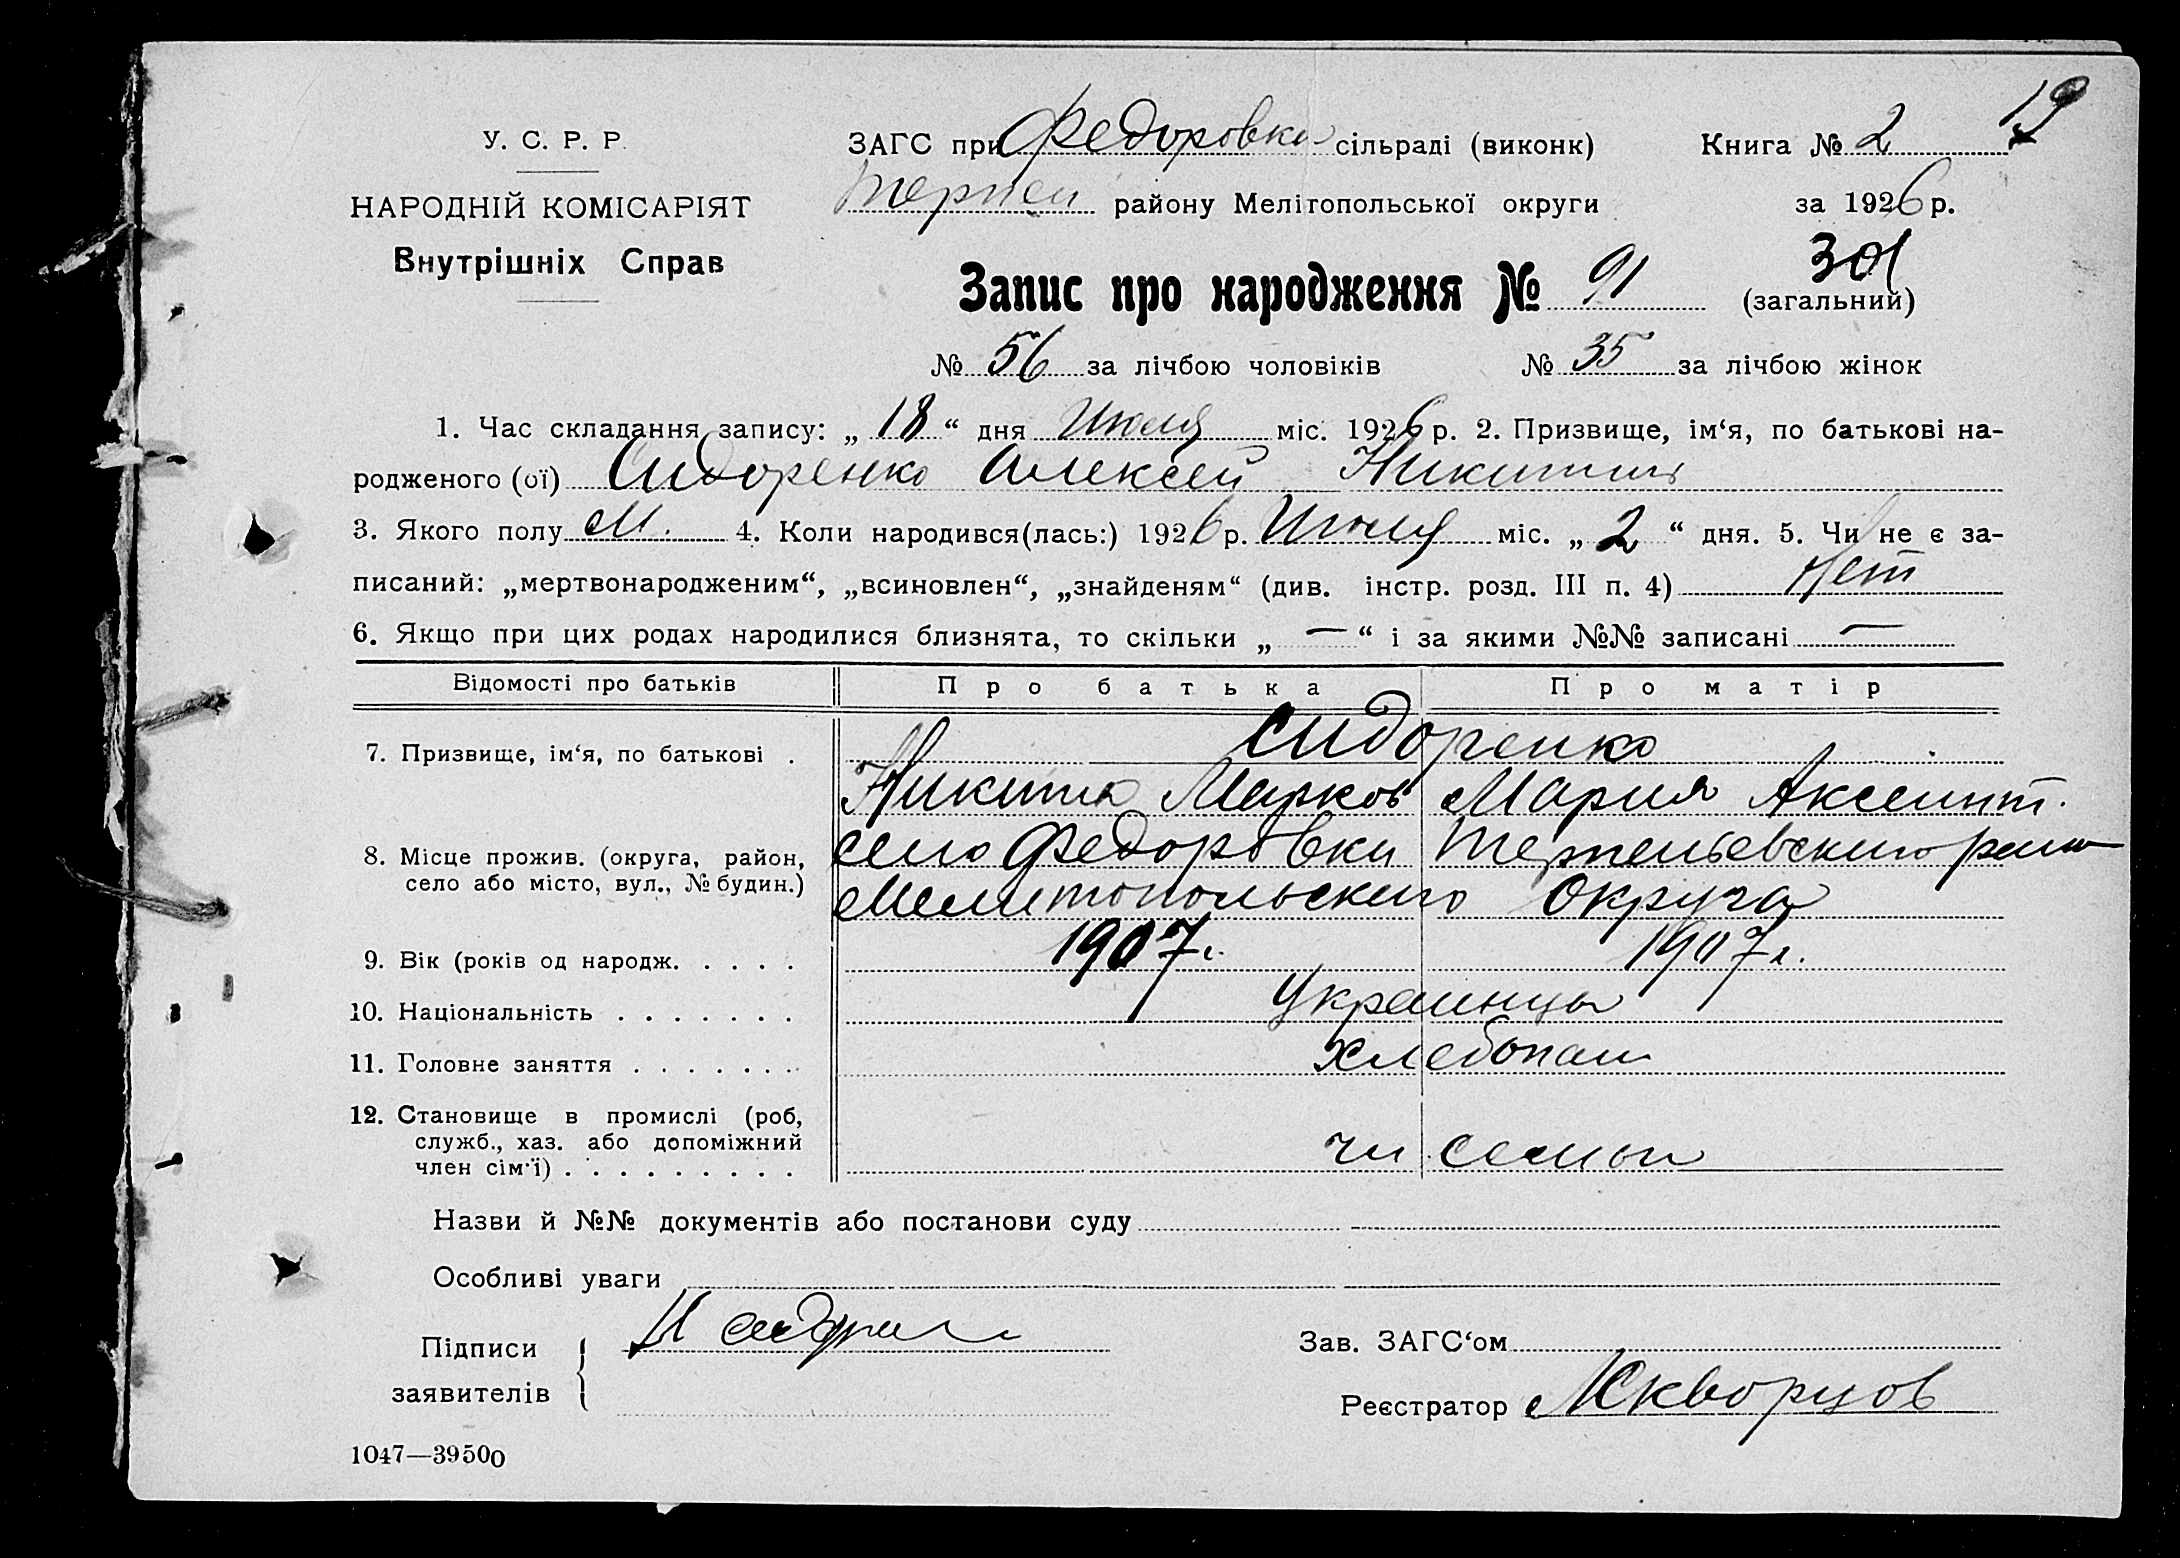 19
У. С. Р. Р.
ЗАГС при Федоровки сільраді (виконк) Книга № 2
НАРОДНІЙ КОМІСАРІЯТ
Терпен району Мелітопольської округи за 1926 р.
Внутрішніх Справ
301
Запис про народження № 91 (загальний)
№ 56 за лічбою чоловіків № 35 за лічбою жінок
1. Час складання запису: „ 18 “ дня Июля міс. 1926 р. 2. Призвище, ім‘я, по батькові на-
родженого (ої) Сидоренко Алексей Никитич
3. Якого полу М. 4. Коли народився(лась:) 1926 р. Июля міс. „ 2 “ дня. 5. Чи не є за-
писаний: „мертвонародженим“, „всиновлен“, „знайденям“ (див. інстр. розд. III п. 4) Нет
6. Якщо при цих родах народилися близнята, то скільки „ — “ і за якими №№ записані —
Відомості про батьків Про батька Про матір
Сидоренко
7. Призвище, ім‘я, по батькові .
Никита Марков Мария Аксеинт.
8. Місце прожив. (округа, район,
село або місто, вул., № будин.)
село Федоровки Терпеньевского района
Мелитопольского Округа
9. Вік (років од народж. . . . . 1907 г. 1907 г.
10. Національність . . . . . . . Украинцы
11. Головне заняття . . . . . . . Хлебопаш
12. Становище в промислі (роб,
служб., хаз. або допоміжний
член сім‘ї) . . . . . . . . . . чл семьи
Назви й №№ документів або постанови суду
Особливі уваги
Підписи
заявителів
Зав. ЗАГС‘ом
Реєстратор Скворцов
1047—39500